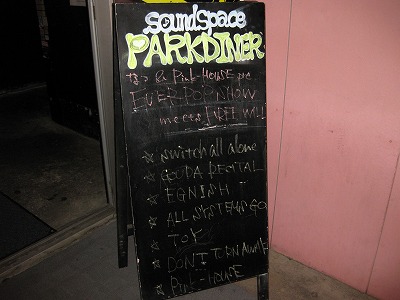 soundspace
PARKDINER
& Pink-HOUSE pre
EVER POP SHOW
meets FREE WILL!!
☆ switch all alone
☆ GOUDA RENTAL
☆ EGNISH
☆ ALL SYSTEMS GO
☆ TOY
☆ DON'T TURN AWAY
☆ Pink-HOUSE